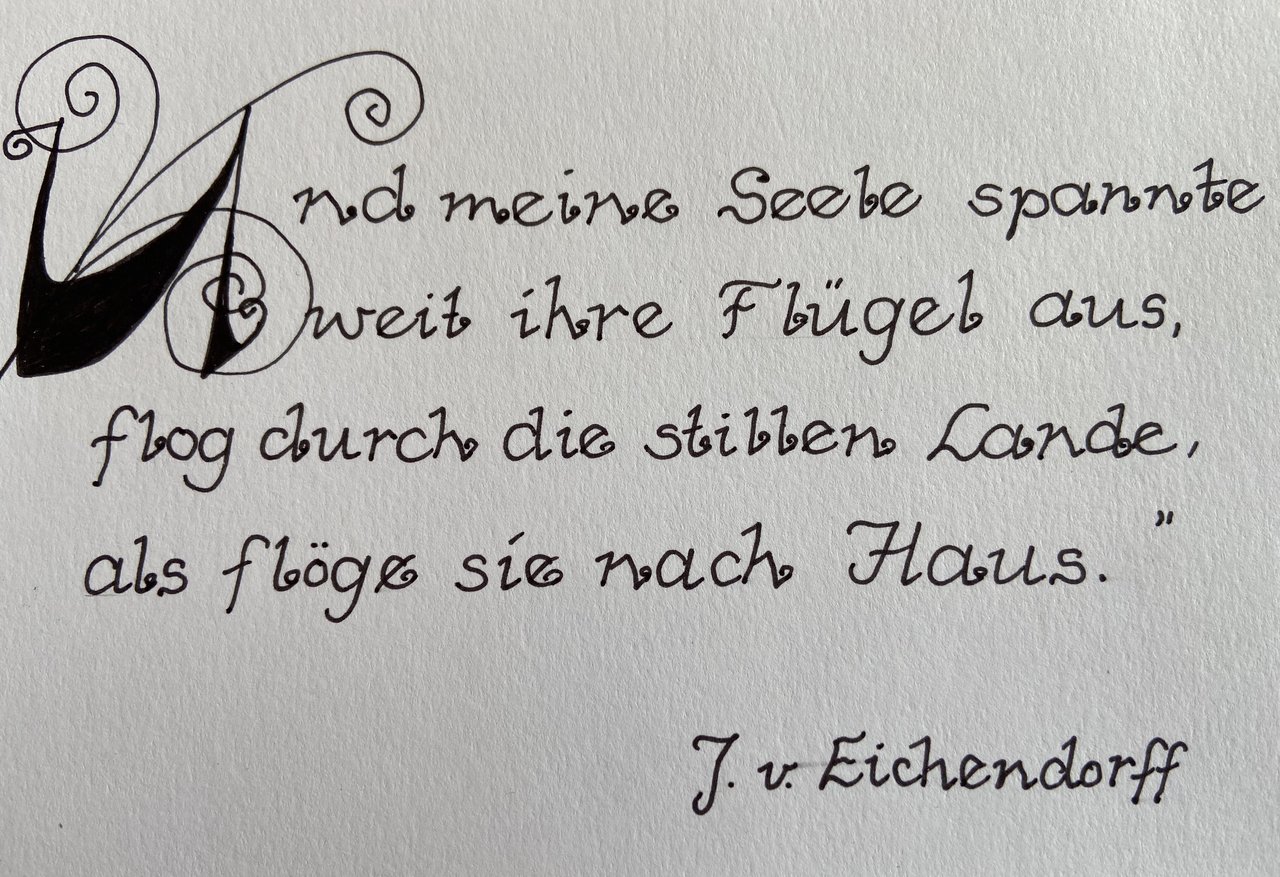 Und meine Seele spannte
weit ihre Flügel aus,
flog durch die stillen Lande,
als flöge sie nach Haus."
J. v. Eichendorff